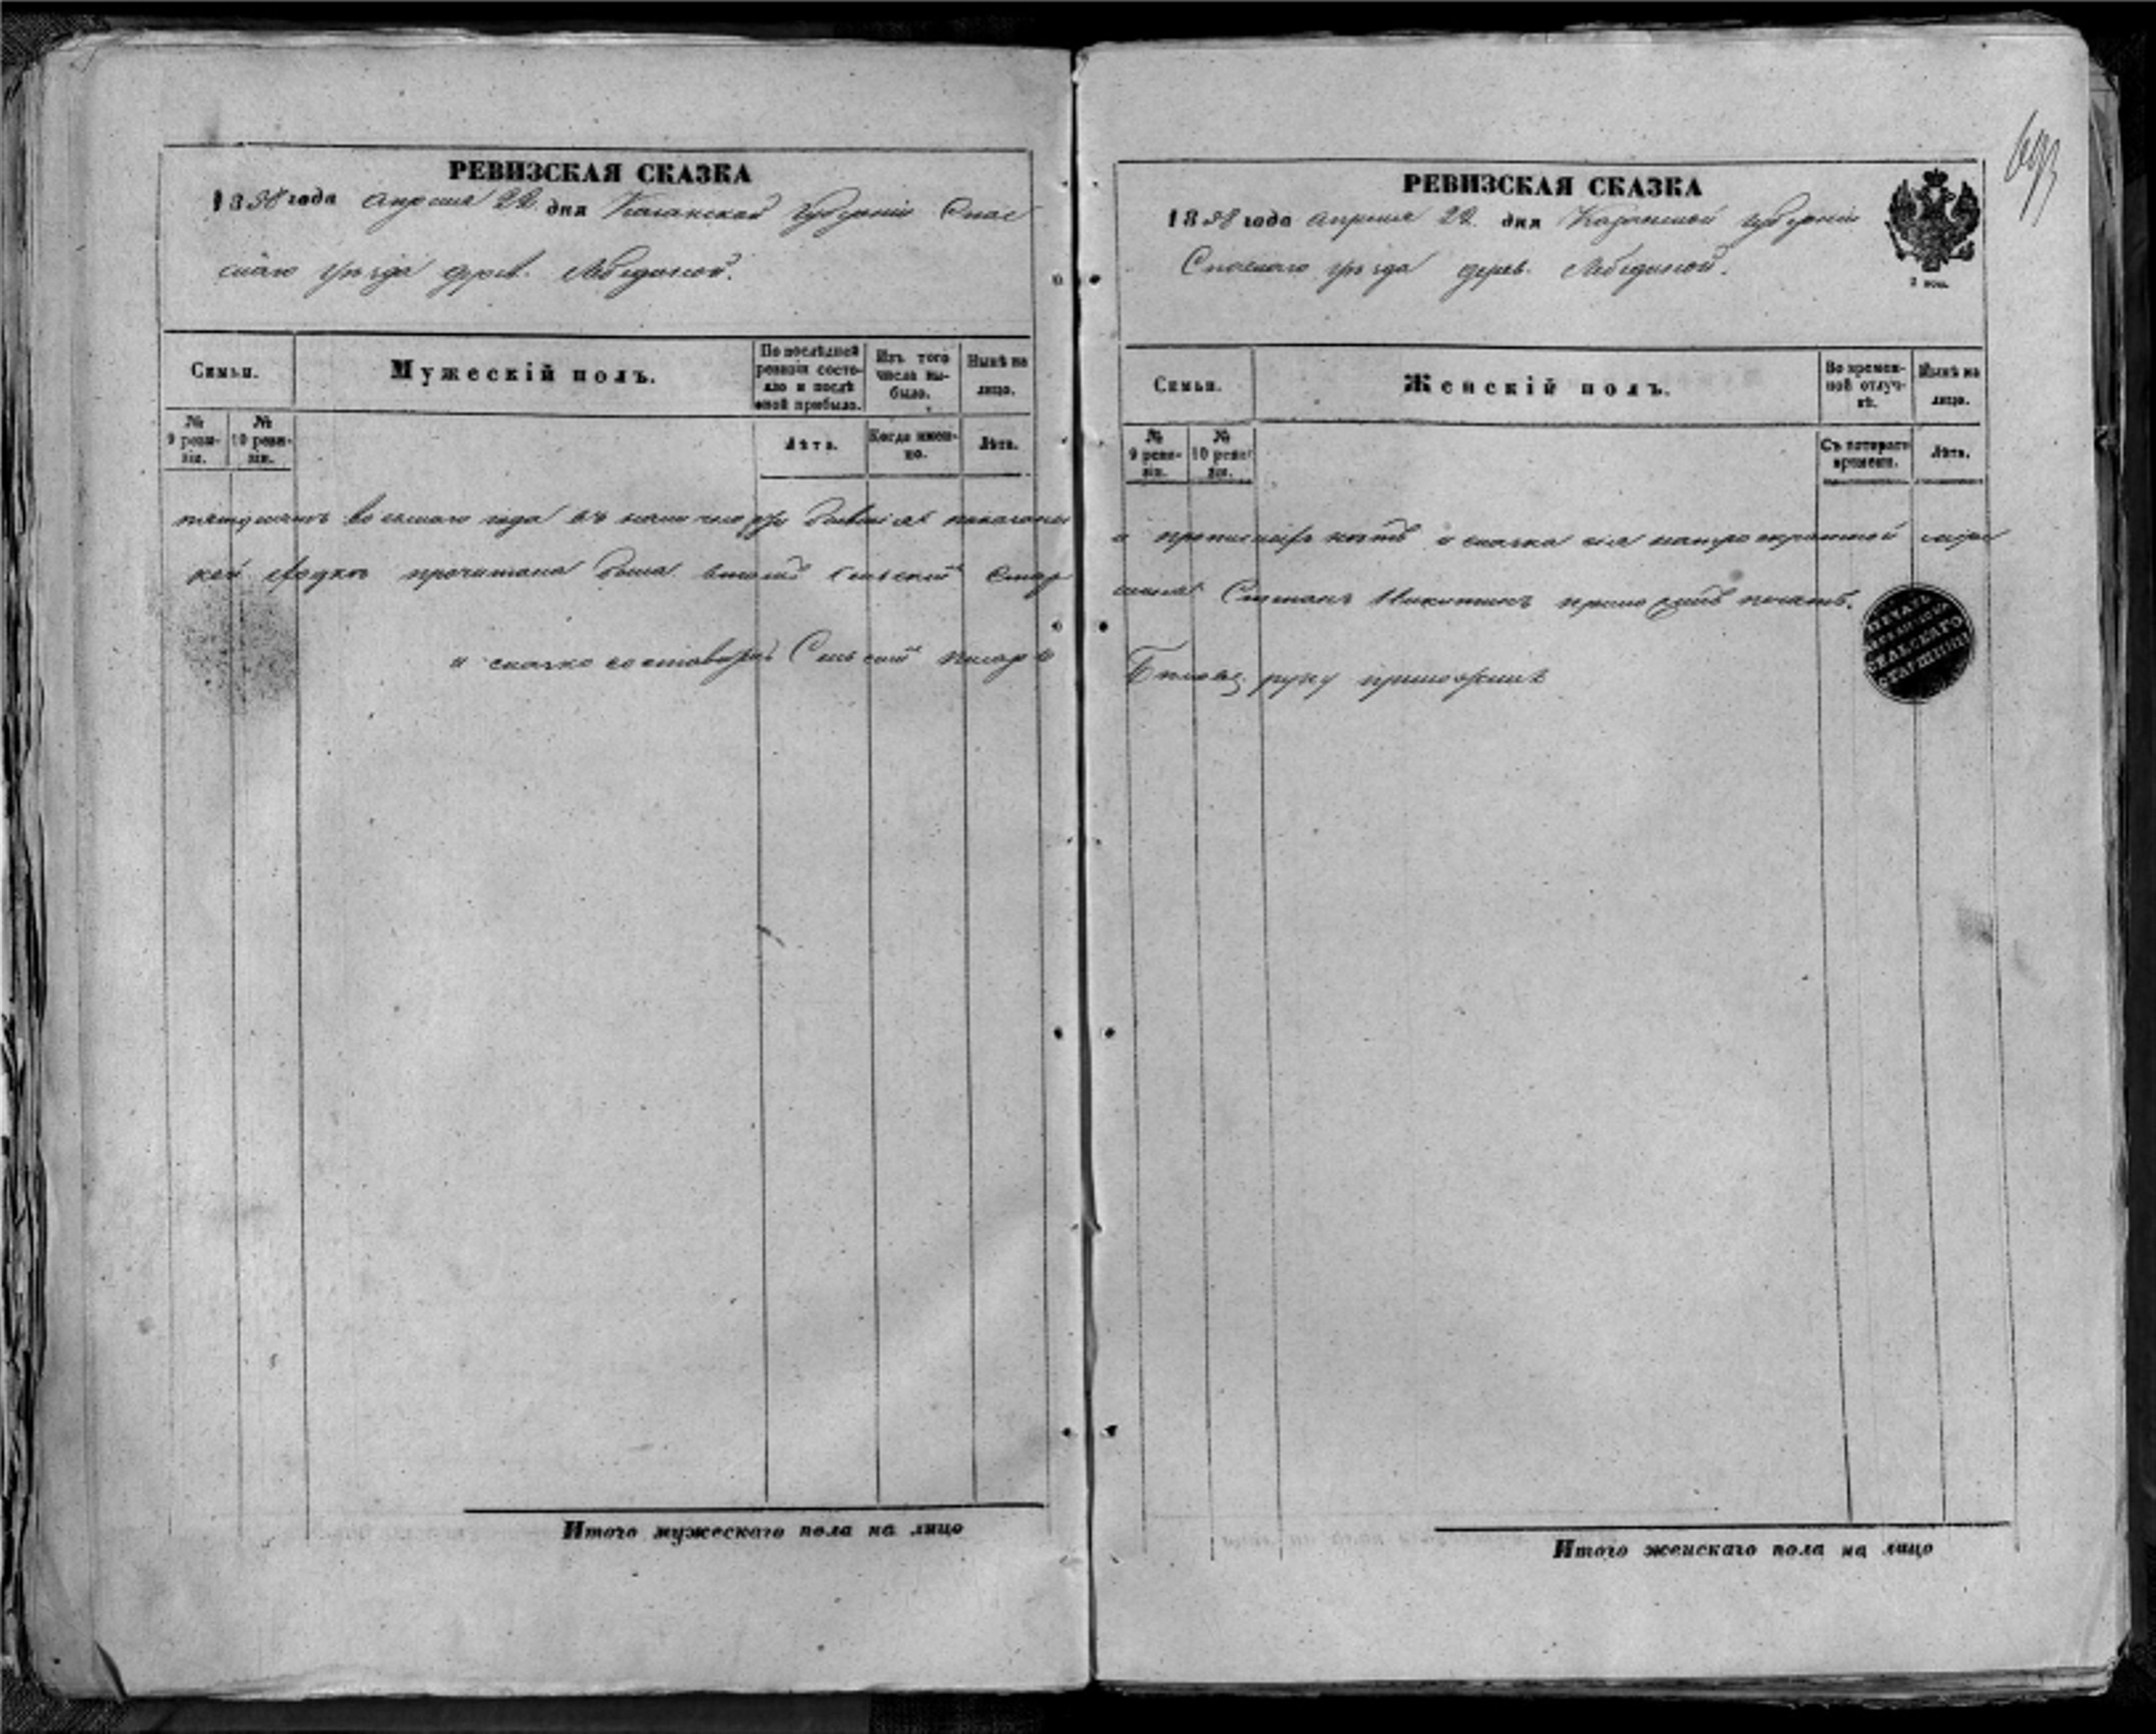 РЕВИЗСКАЯ СКАЗКА
1858 года Апреля 22. дня Казанской Губерніи Спас
скаго уѣзда дерев. Лебединой.
Семьи.
Мужескій полъ.
По послѣдней ревизіи состояло и послѣ оной прибыло.
Изъ того числа выбыло.
Нынѣ на лицо.
№ 9 ревизіи.
№ 10 ревизіи.
Лѣта.
Когда именно.
Лѣта.
восьмаго года въ
прочитана была Сельскій Стар
и сказку составлялъ Сельскій писарь
Итого мужескаго пола на лицо
РЕВИЗСКАЯ СКАЗКА
1858 года Апреля 22. дня Казанской Губерніи
Спаскаго уѣзда дерев. Лебединой.
2 коп.
Семьи.
Женскій полъ.
Во временной отлучкѣ.
Нынѣ на лицо.
№ 9 ревизіи.
№ 10 ревизіи.
Съ котораго времени.
Лѣта.
и нѣтъ и сказка сія на мірс
Степанъ Никитинъ приложилъ печать.
руку приложилъ
ПЕЧАТЬ
СЕЛЬСКАГО
СТАРШИНЫ
Итого женскаго пола на лицо